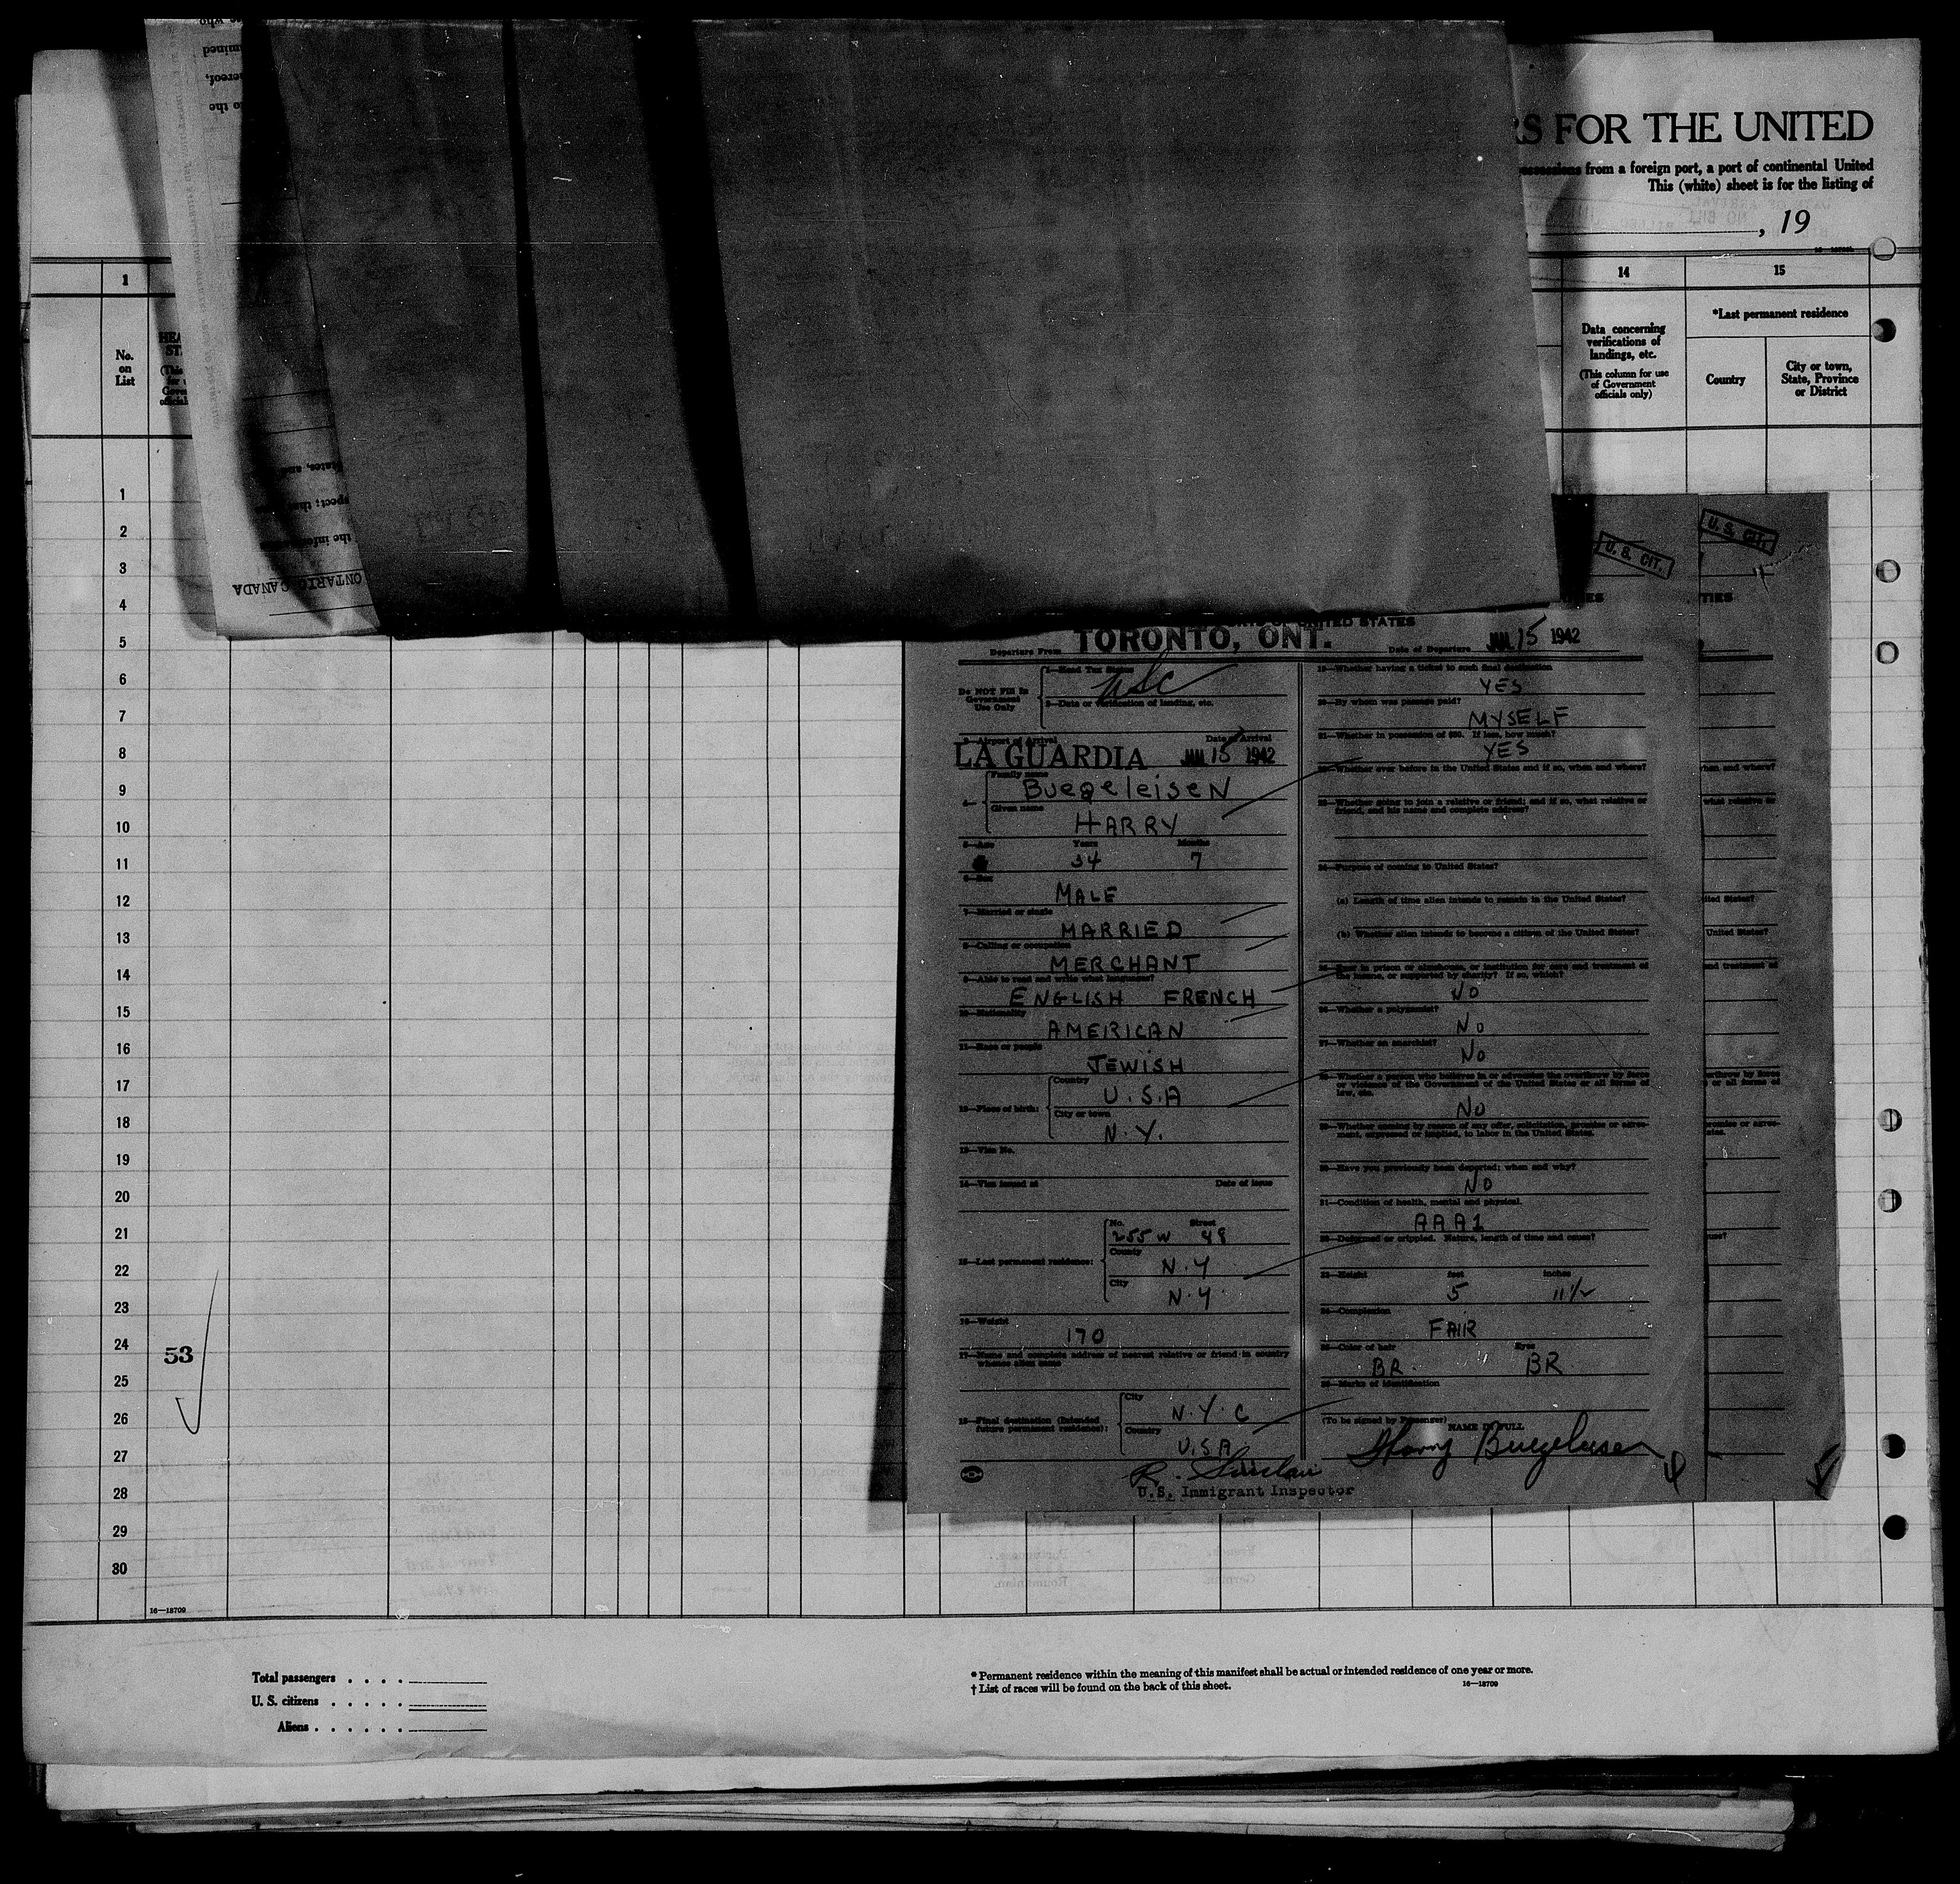 RS FOR THE UNITED
from a foreign port, a port of continental United
This (white) sheet is for the listing of
, 19
1
14
15
No.
on
List
Data concerning
verifications of
landings, etc.
(This column for use
of Government
officials only)
*Last permanent residence
Country
City or town,
State, Province
or District
ONTARIO CANADA
1
2
3
4
5
6
7
8
9
10
11
12
13
14
15
16
17
18
19
20
21
22
23
24
25
26
27
28
29
30
53
16—18709
U. S. CIT.
U. S. CIT.
UNITED STATES
Departure From TORONTO, ONT. Date of Departure JAN 15 1942
Do NOT Fill In
Government
Use Only
1—Head Tax Status
USC
2—Data or verification of landing, etc.
3—Airport of Arrival Date of Arrival
LA GUARDIA JAN 15 1942
4—
Family name
Buegeleisen
Given name
HARRY
5—Age Years Months
34 7
6—Sex
MALE
7—Married or single
MARRIED
8—Calling or occupation
MERCHANT
9—Able to read and write what languages?
ENGLISH FRENCH
10—Nationality
AMERICAN
11—Race or people
JEWISH
12—Place of birth:
Country
U.S.A
City or town
N.Y.
13—Visa No.
14—Visa issued at Date of issue
15—Last permanent residence:
No. Street
255 W 48
County
N.Y
City
N.Y.
16—Weight
170
17—Name and complete address of nearest relative or friend in country
whence alien came
18—Final destination (Intended
future permanent residence):
City
N.Y.C
Country
U.S.A
R. Sinclair
U.S. Immigrant Inspector
19—Whether having a ticket to such final destination
YES
20—By whom was passage paid?
MYSELF
21—Whether in possession of $50. If less, how much?
YES
22—Whether ever before in the United States and if so, when and where?
23—Whether going to join a relative or friend; and if so, what relative or
friend, and his name and complete address?
24—Purpose of coming to United States?
(a) Length of time alien intends to remain in the United States?
(b) Whether alien intends to become a citizen of the United States?
25—Ever in prison or almshouse, or institution for care and treatment of
the insane, or supported by charity? If so, which?
NO
26—Whether a polygamist?
NO
27—Whether an anarchist?
NO
28—Whether a person who believes in or advocates the overthrow by force
or violence of the Government of the United States or all forms of
law, etc.
NO
29—Whether coming by reason of any offer, solicitation, promise or agree-
ment, expressed or implied, to labor in the United States.
30—Have you previously been deported; when and why?
NO
31—Condition of health, mental and physical.
AAA1
32—Deformed or crippled. Nature, length of time and cause?
33—Height feet inches
5 11 1/2
34—Complexion
FAIR
35—Color of hair Eyes
BR. BR.
36—Marks of identification
(To be signed by Passenger) NAME IN FULL
Harry Buegeleisen
Total passengers . . . .
U. S. citizens . . . . .
Aliens . . . . . .
* Permanent residence within the meaning of this manifest shall be actual or intended residence of one year or more.
† List of races will be found on the back of this sheet.
16—18709